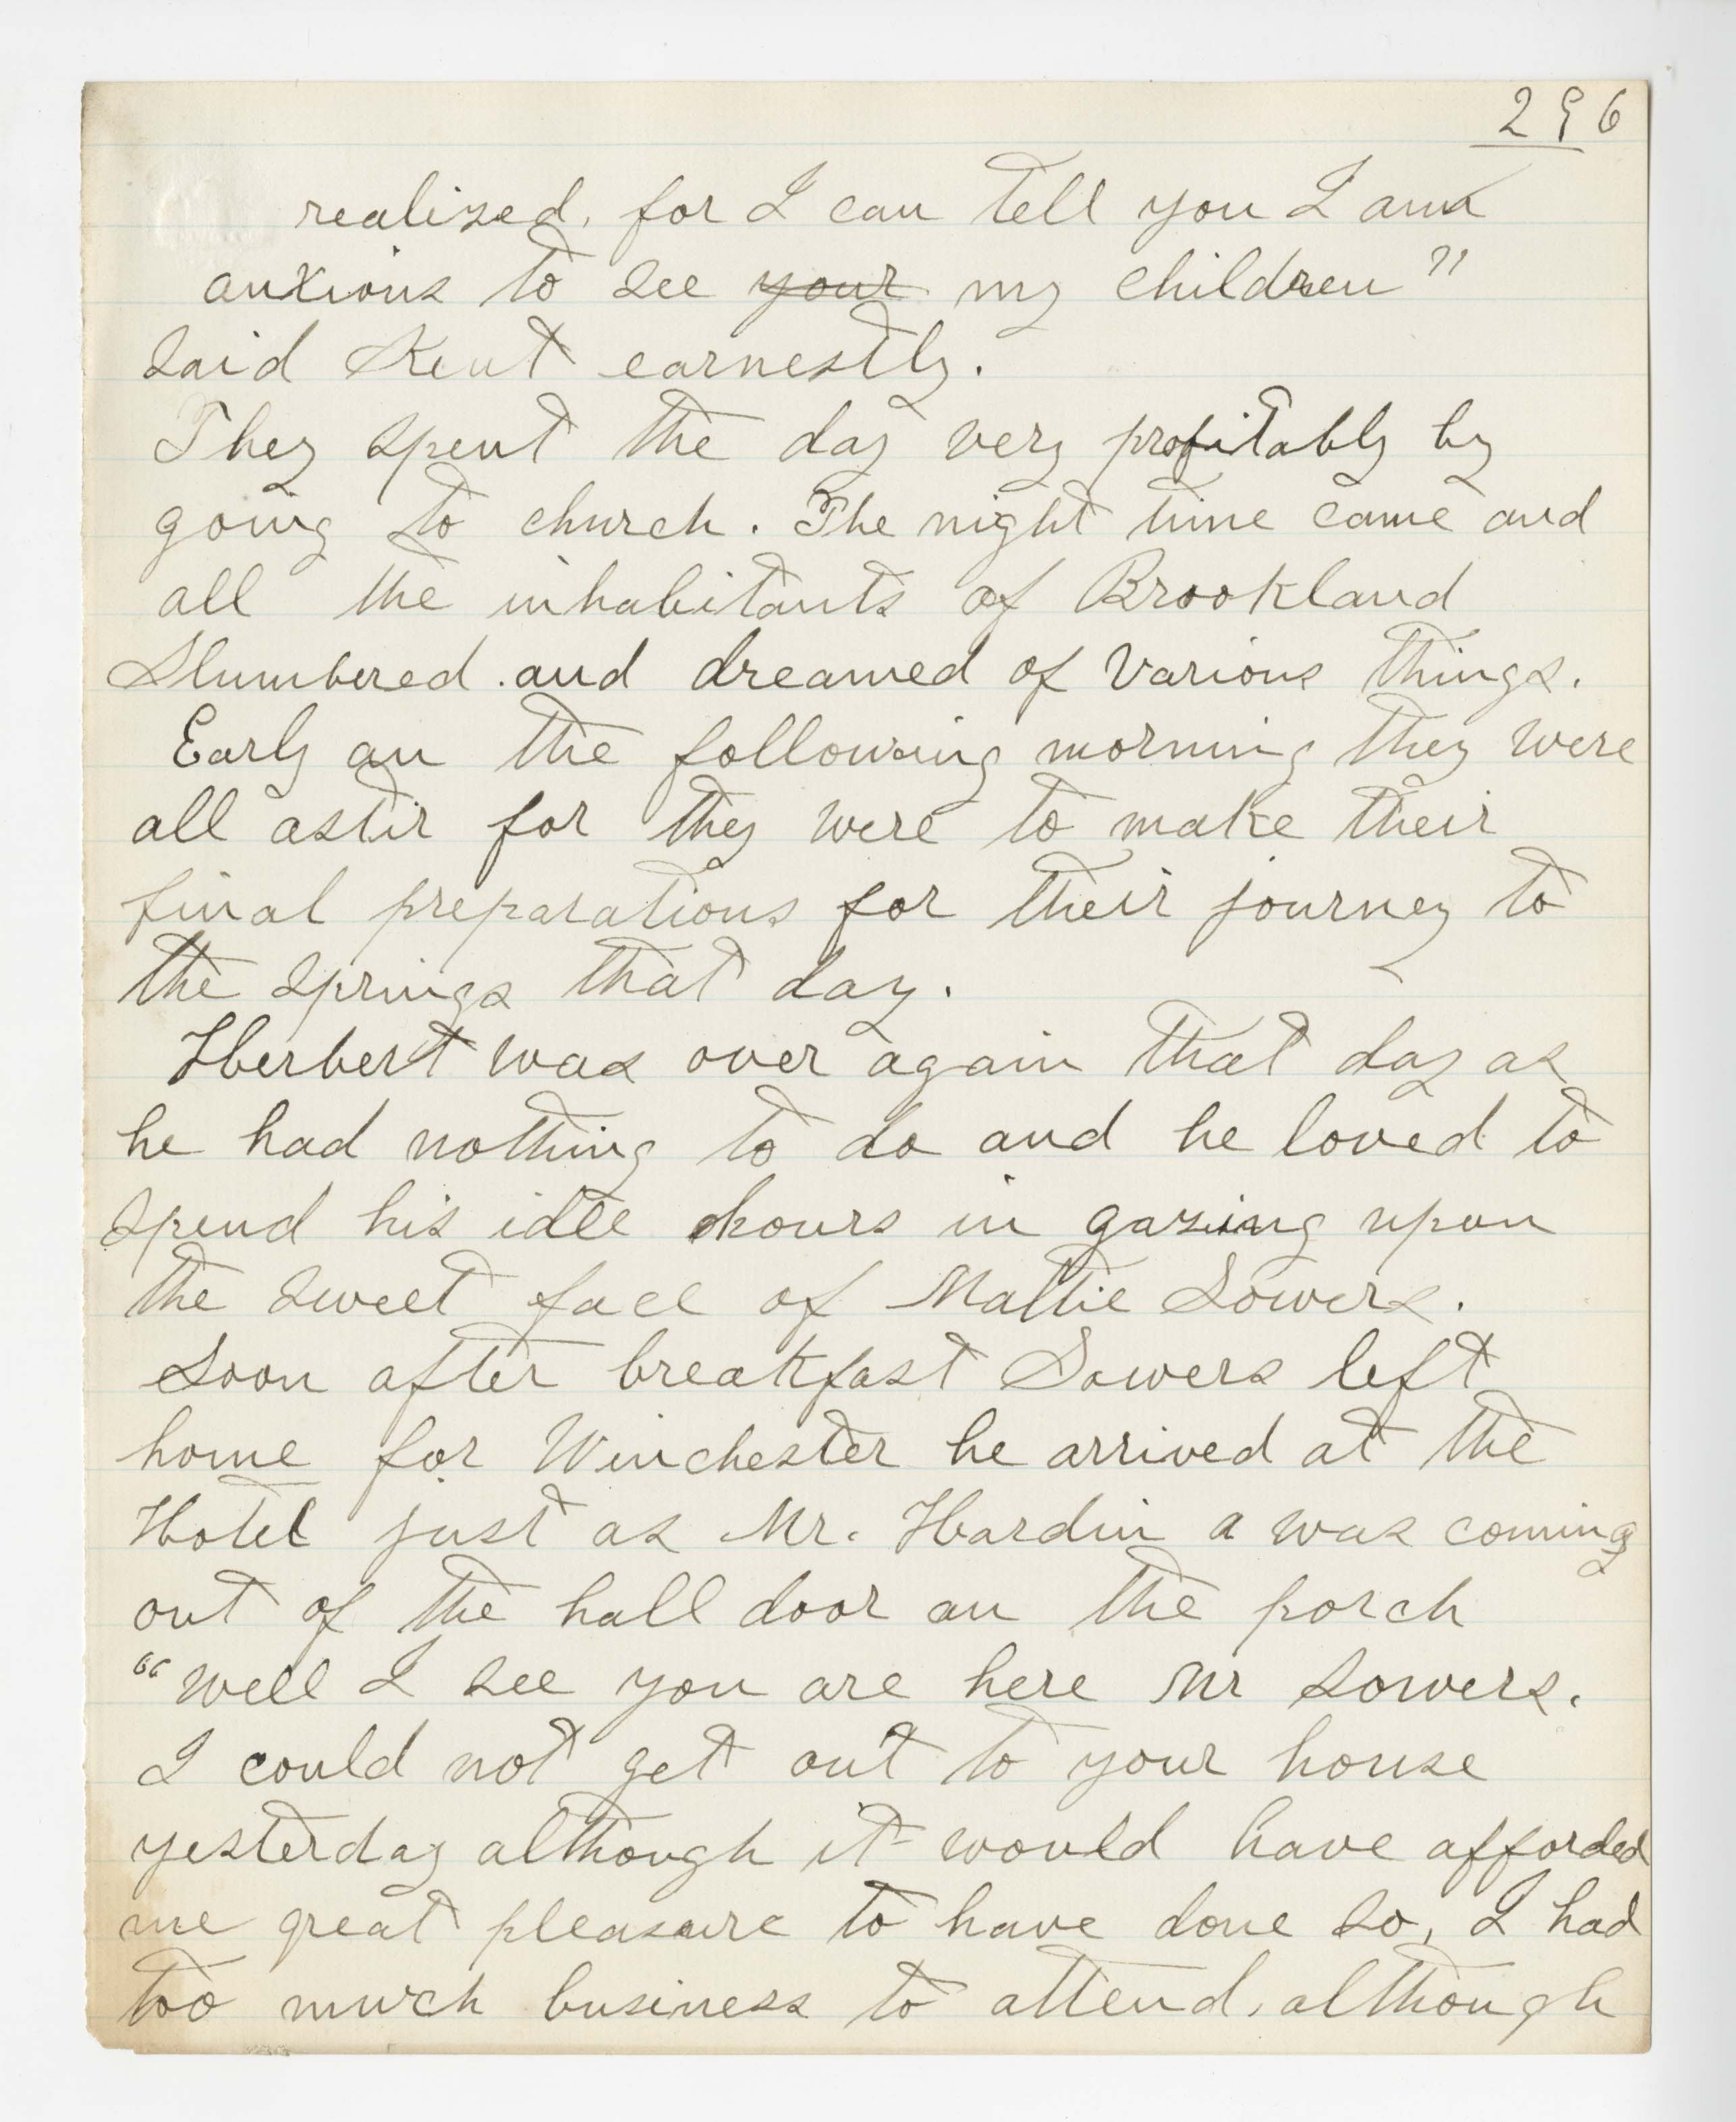 296
realized, for I can tell you I am
anxious to see your my children"
said Kent earnestly.
They spent the day very profitably by
going to church. The night time came and
all the inhabitants of Brookland
Slumbered and dreamed of various things.
Early an the following morning they were
all astir for they were to make their
final preparations for their journey to
the springs that day.
Herbert was over again that day as
he had nothing to do and he loved to
spend his idle hours in gazing upon
the sweet face of Mattie Sowers.
Soon after breakfast Sowers left
home for Winchester he arrived at the
Hotel just as Mr. Hardin a was coming
out of the hall door an the porch
"Well I see you are here Mr Sowers.
I could not get out to your house
yesterday although it would have afforded
me great pleasure to have done so, I had
too much business to attend, although